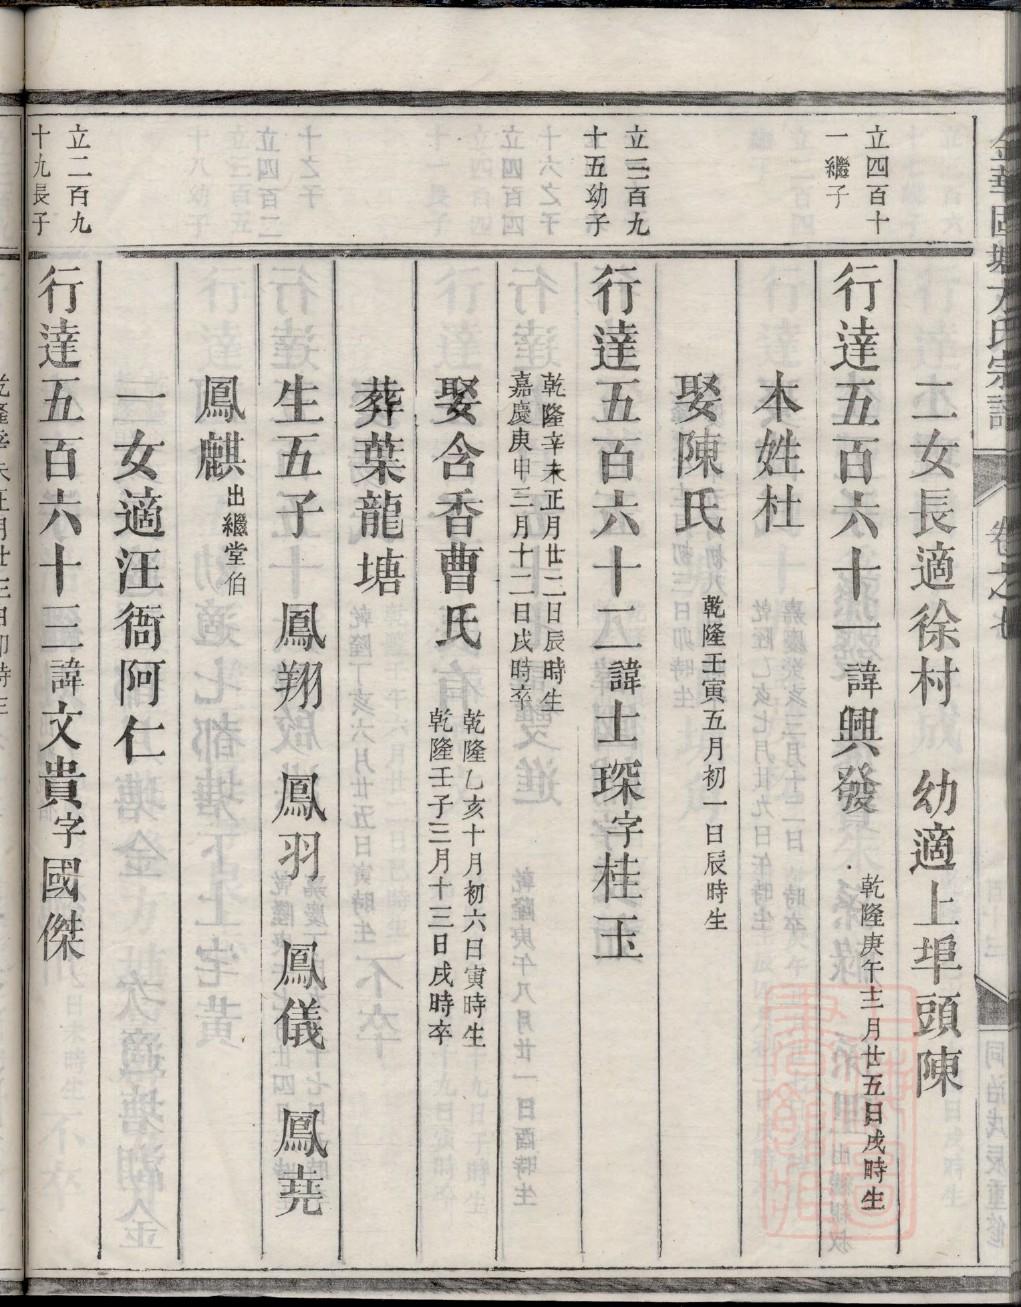 二女長適徐村　幼適上埠頭陳
立四百十
一繼子
行達五百六十一諱興發
乾隆庚午十二月廿五日戌時生
本姓杜
娶陳氏
乾隆壬寅五月初一日辰時生
立三百九
十五幼子
行達五百六十二諱士琛字桂玉
乾隆辛未正月廿二日辰時生
嘉慶庚申三月十二日戌時卒
娶含香曹氏
乾隆乙亥十月初六日寅時生
乾隆壬子三月十三日戌時卒
葬葉龍塘
生五子　鳳翔　鳳羽　鳳儀　鳳堯
鳳麒出繼堂伯
一女適汪衙阿仁
立二百九
十九長子
行達五百六十三諱文貴字國傑